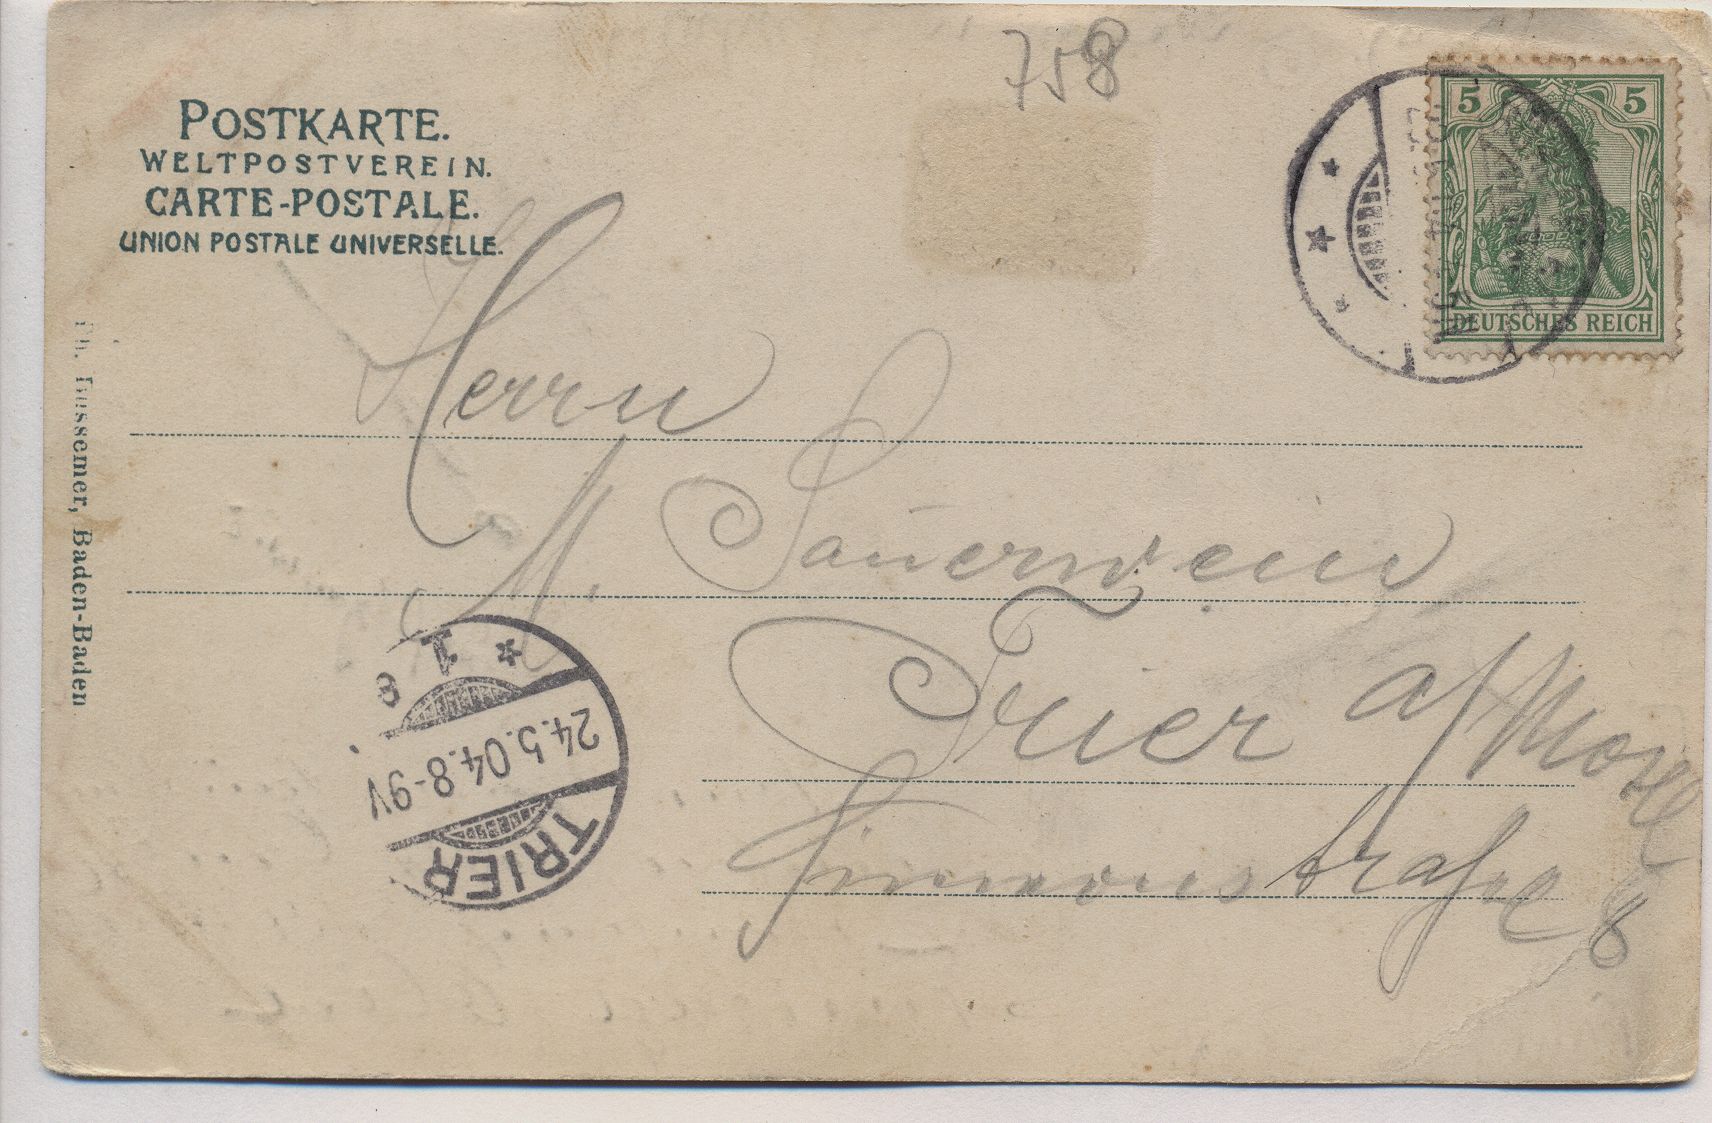 758
5 5
DEUTSCHES REICH
POSTKARTE.
WELTPOSTVEREIN.
CARTE-POSTALE.
UNION POSTALE UNIVERSELLE.
Ph. Bussemer, Baden-Baden
Herrn
M. Sauerwein
Trier a/Mosel
Simeonstraße 8
TRIER
24.5.04.8-9V
1